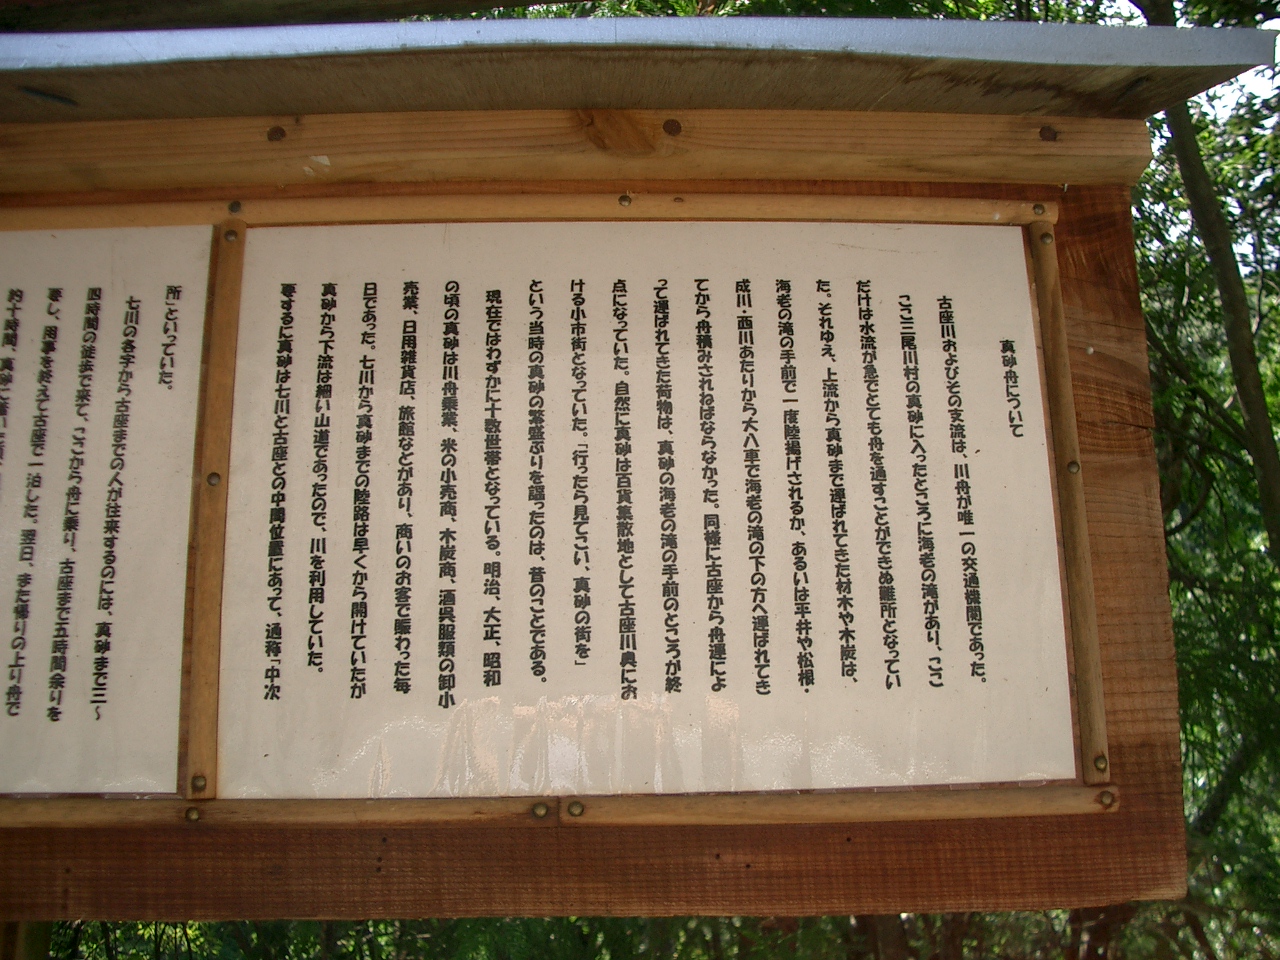 真砂舟について
古座川およびその支流は、川舟が唯一の交通機関であった。
ここ三尾川村の真砂に入ったところに海老の滝があり、ここ
だけは水流が急でとても舟を通すことができぬ難所となってい
た。それゆえ、上流から真砂まで運ばれてきた材木や木炭は、
海老の滝の手前で一度陸揚げされるか、あるいは平井や松根・
成川・西川あたりから大八車で海老の滝の下の方へ運ばれてき
てから舟積みされねばならなかった。同様に古座から舟運によ
って運ばれてきた荷物は、真砂の海老の滝の手前のところが終
点になっていた。自然に真砂は百貨集散地として古座川奥にお
ける小市街となっていた。「行ったら見てこい、真砂の街を」
という当時の真砂の繁盛ぶりを謳ったのは、昔のことである。
現在ではわずかに十数世帯となっている。明治、大正、昭和
の頃の真砂は川舟乗業、米の小売商、木炭商、酒呉服類の卸小
売業、日用雑貨店、旅館などがあり、商いのお客で賑わった毎
日であった。七川から真砂までの陸路は早くから開けていたが
真砂から下流は細い山道であったので、川を利用していた。
要するに真砂は七川と古座との中間位置にあって、通称「中次
所」といっていた。
七川の各字から古座までの人が往来するのには、真砂まで三～
四時間の徒歩で来て、ここから舟に乗り、古座まで五時間余りを
要し、用事を終えて古座で一泊した。翌日、また帰りの上り舟で
約十時間、真砂に